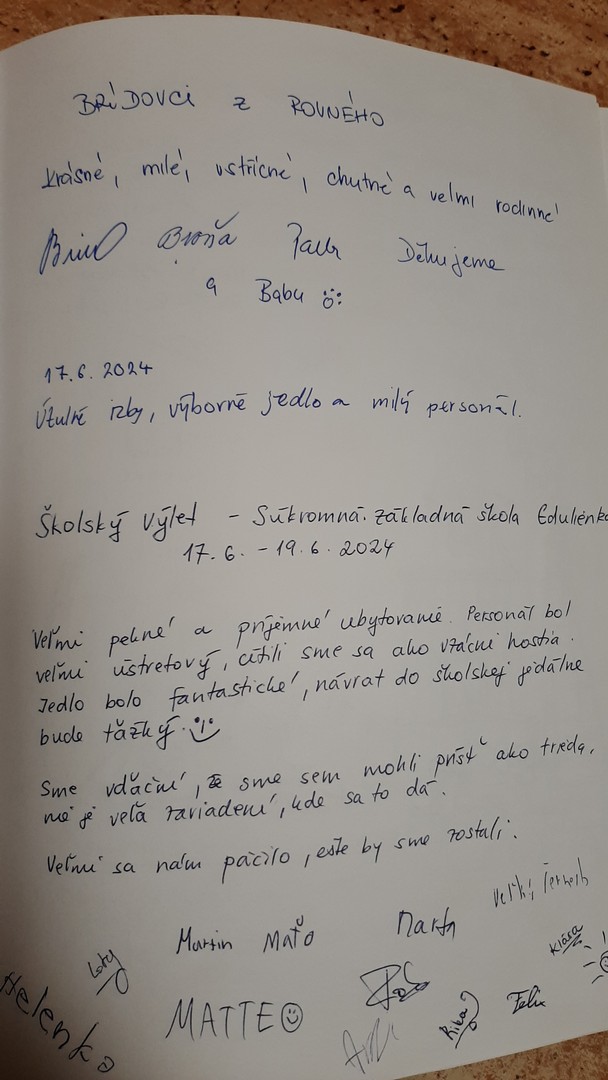 BRÍDOVCI z ROVNÉHO
krásné, milé, vstřícné, chutné a velmi rodinné
Broňa Děkujeme
a Babu
17.6.2024
Útulné izby, výborné jedlo a milý personál.
Školský výlet - Súkromná základná škola Edulienka
17.6. - 19.6.2024
Veľmi pekné a príjemné ubytovanie. Personál bol
veľmi ústretový, cítili sme sa ako vzácni hostia.
Jedlo bolo fantastické, návrat do školskej jedálne
bude ťažký.
Sme vďační, že sme sem mohli prísť ako trieda,
nie je veľa zariadení, kde sa to dá.
Veľmi sa nám páčilo, ešte by sme zostali.
Veľký
Martin Maťo Marta
Klára
Loty
Helenka
MATTEO
Riba
Felix